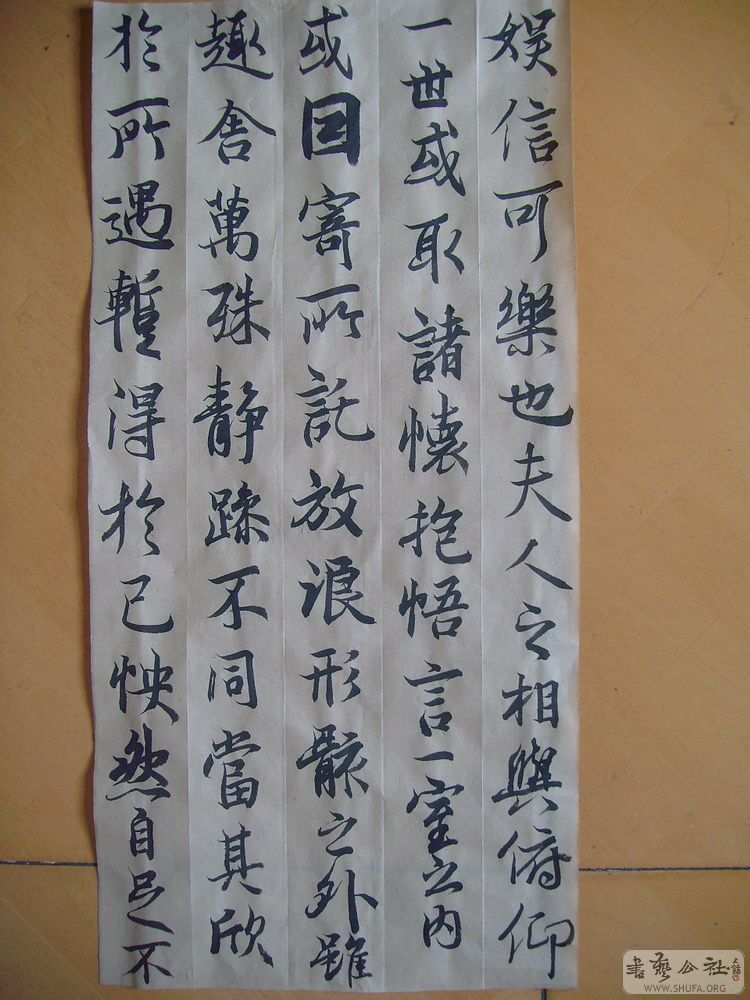 娱信可樂也夫人之相與俯仰
一世或取諸懷抱悟言一室之内
或因寄所託放浪形骸之外雖
趣舍萬殊静躁不同當其欣
於所遇暫得於己怏然自足不
書藝公社
WWW.SHUFA.ORG